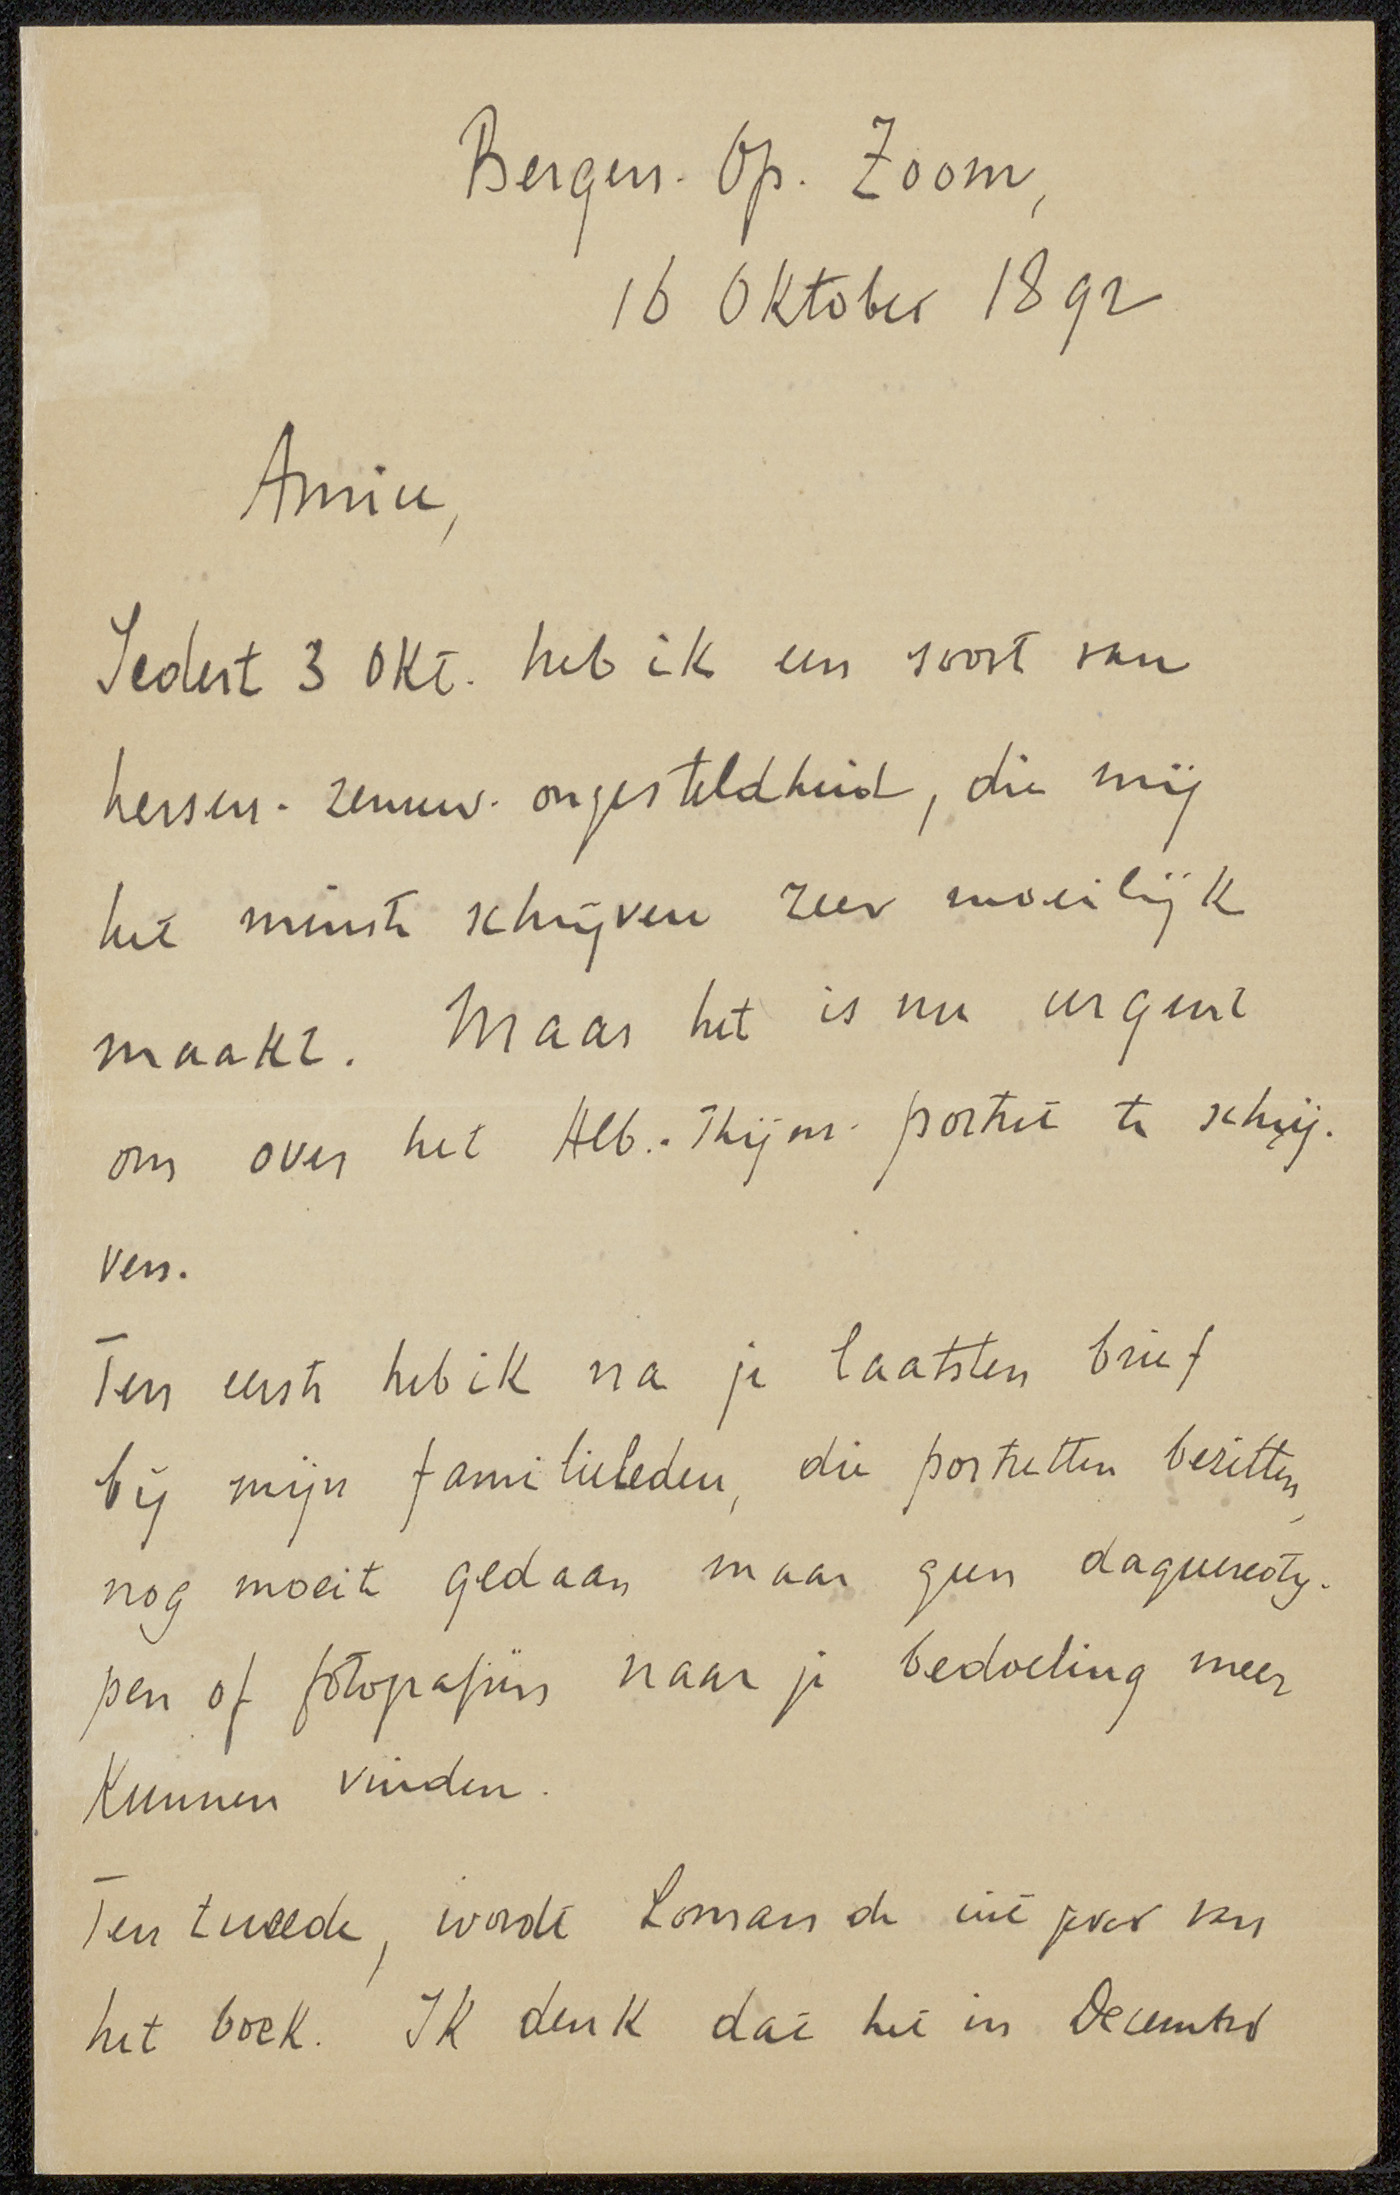 Bergen-Op-Zoom,
16 Oktober 1892
Amice,
Sedert 3 Okt. heb ik een soort van
hersen-zenuw-ongesteldheid, die mij
het minste schrijven zeer moeilijk
maakt. Maar het is nu urgent
om over het Alb.-Thijm-portret te schrij-
ven.
Ten eerste heb ik na je laatsten brief
bij mijn familieleden, die portretten bezitten,
nog moeite gedaan maar geen daguereoty-
pen of fotografiën naar je bedoeling meer
kunnen vinden.
Ten tweede, wordt Loman de uitgever van
het boek. Ik denk dat het in December